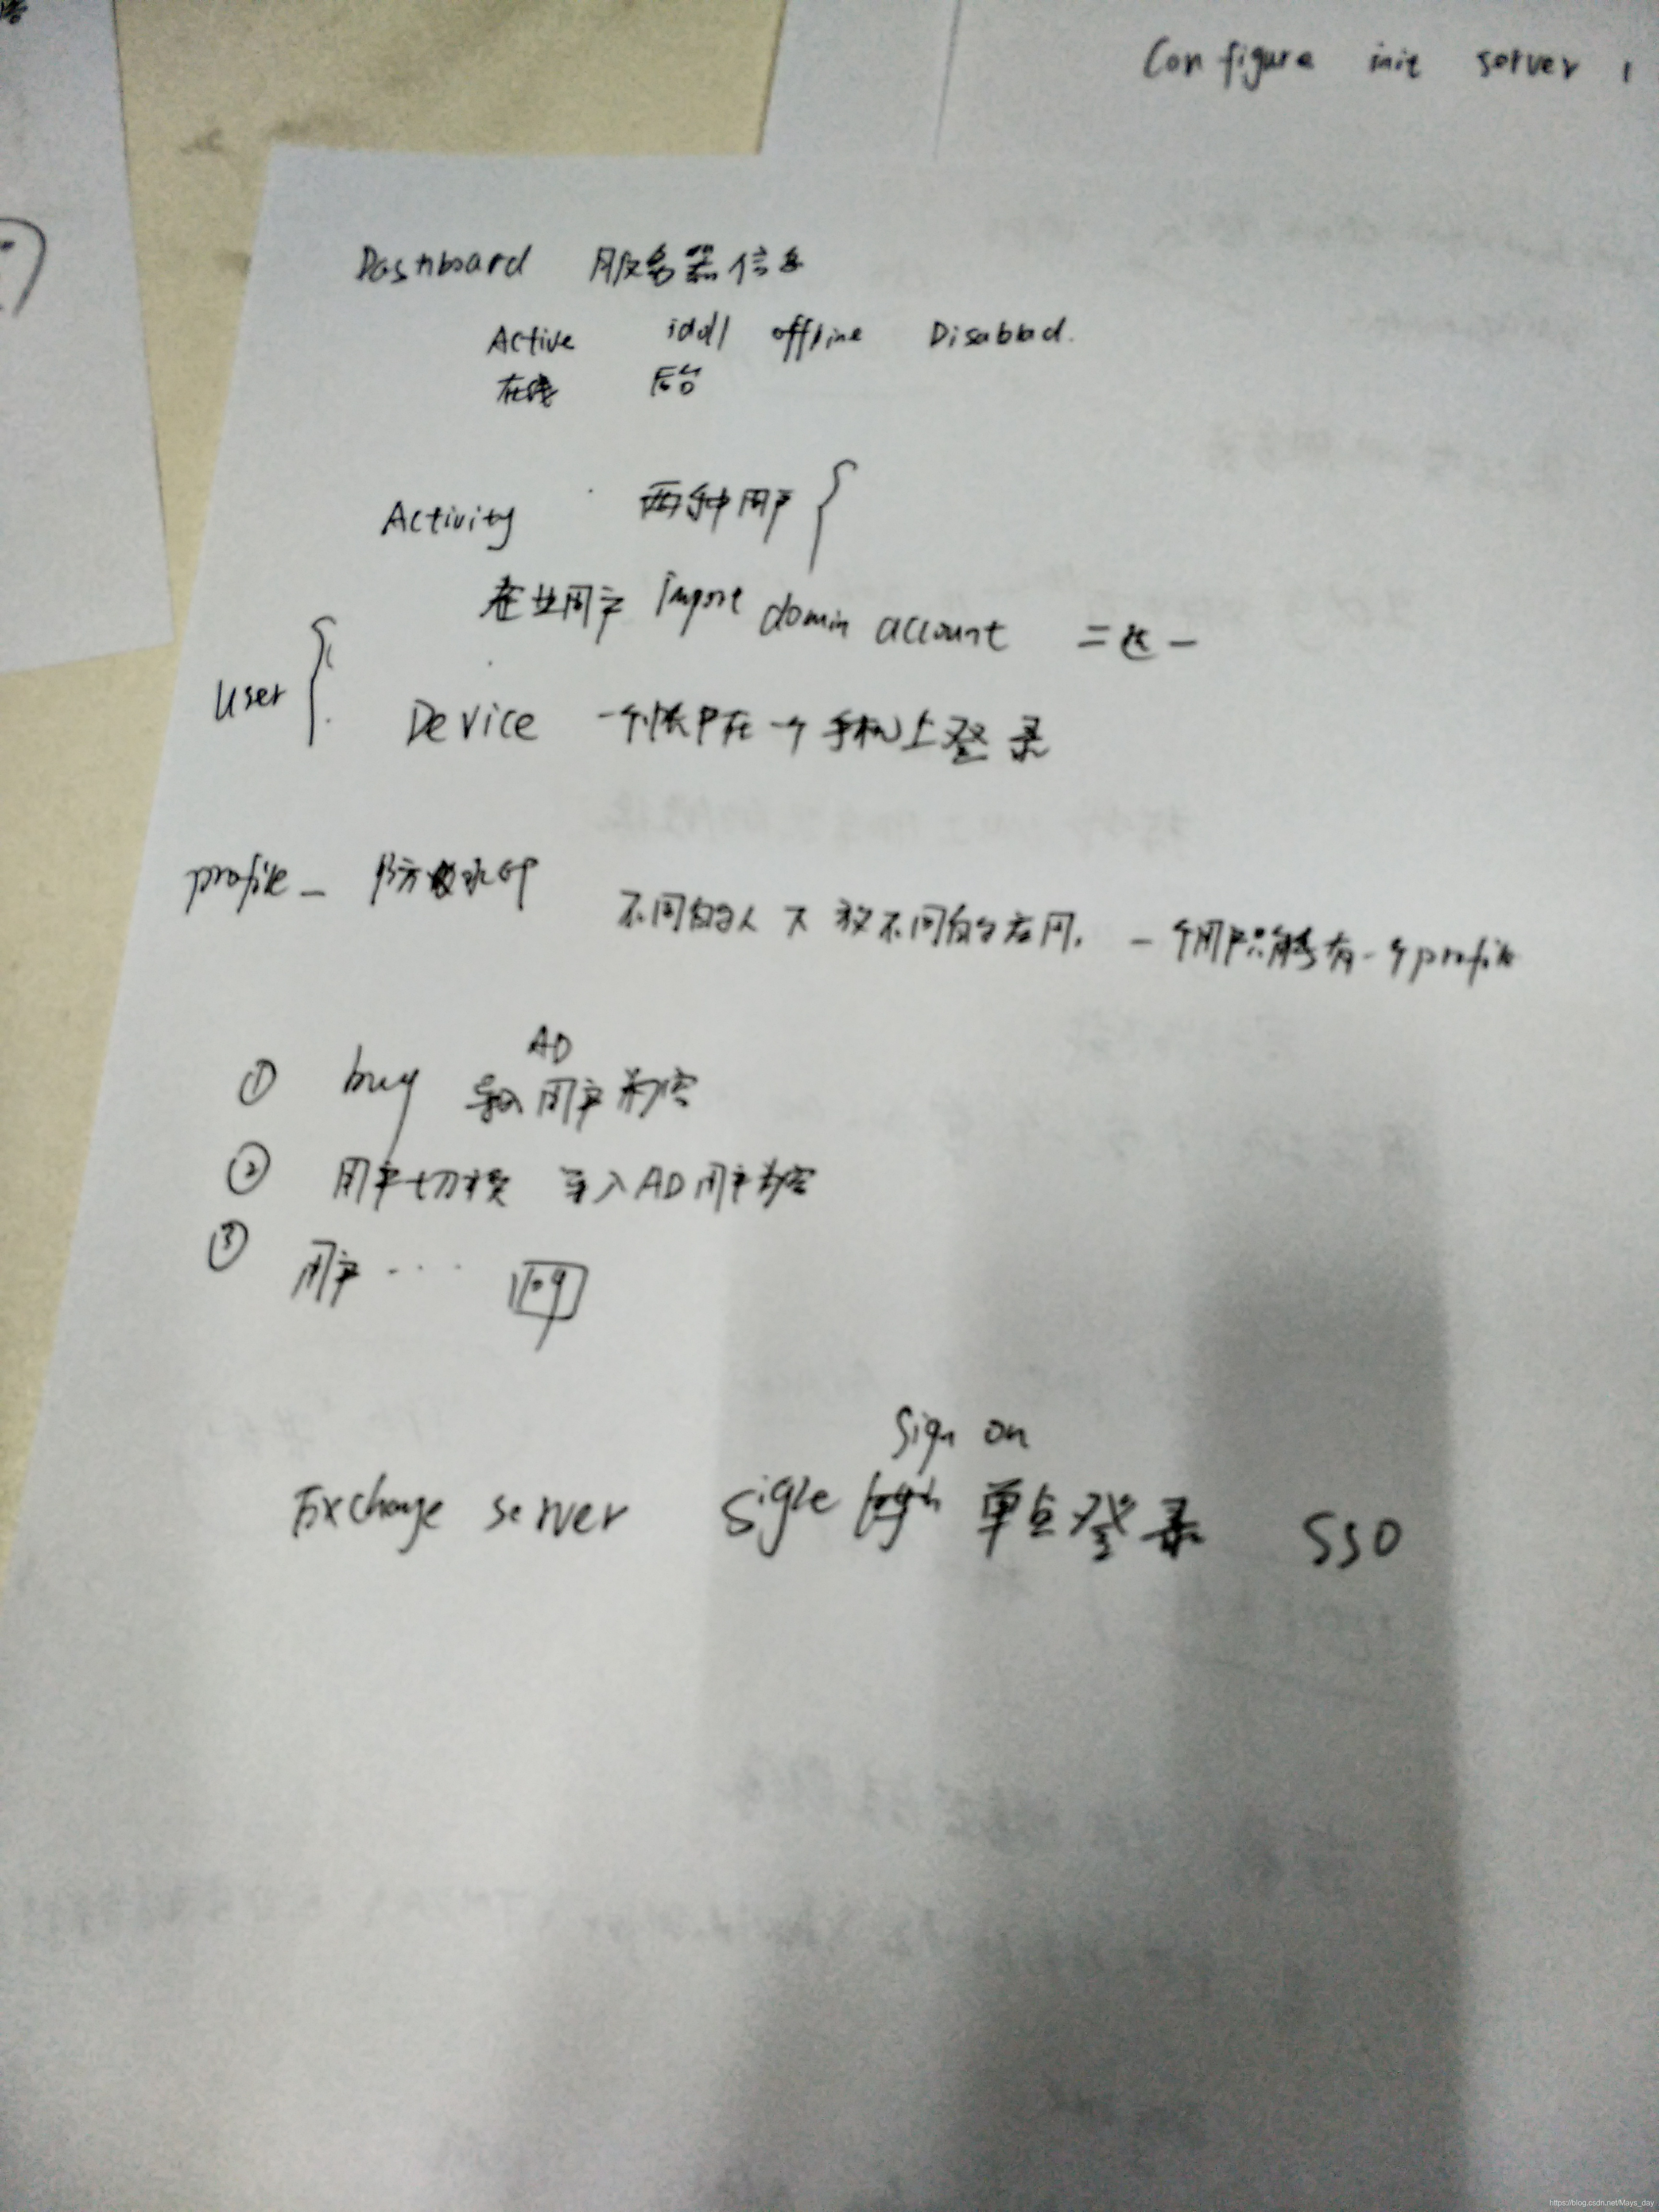 Configure init server
Dashboard 服务器信息
Active iddl offline Disabbad.
在线 后台
Activity 两种用户 {
企业用户 import domin account 二选一
user {
Device 一个帐户在一个手机上登录
profile — 防 水印
不同的人下放不同的应用, 一个用户只能有一个profile
① bug 导入用户为空
AD
② 用户切换 导入AD用户为空
③ 用户 .... log
Sign on
Exchange server Sigle login 单点登录 SSO
https://blog.csdn.net/Mays_day